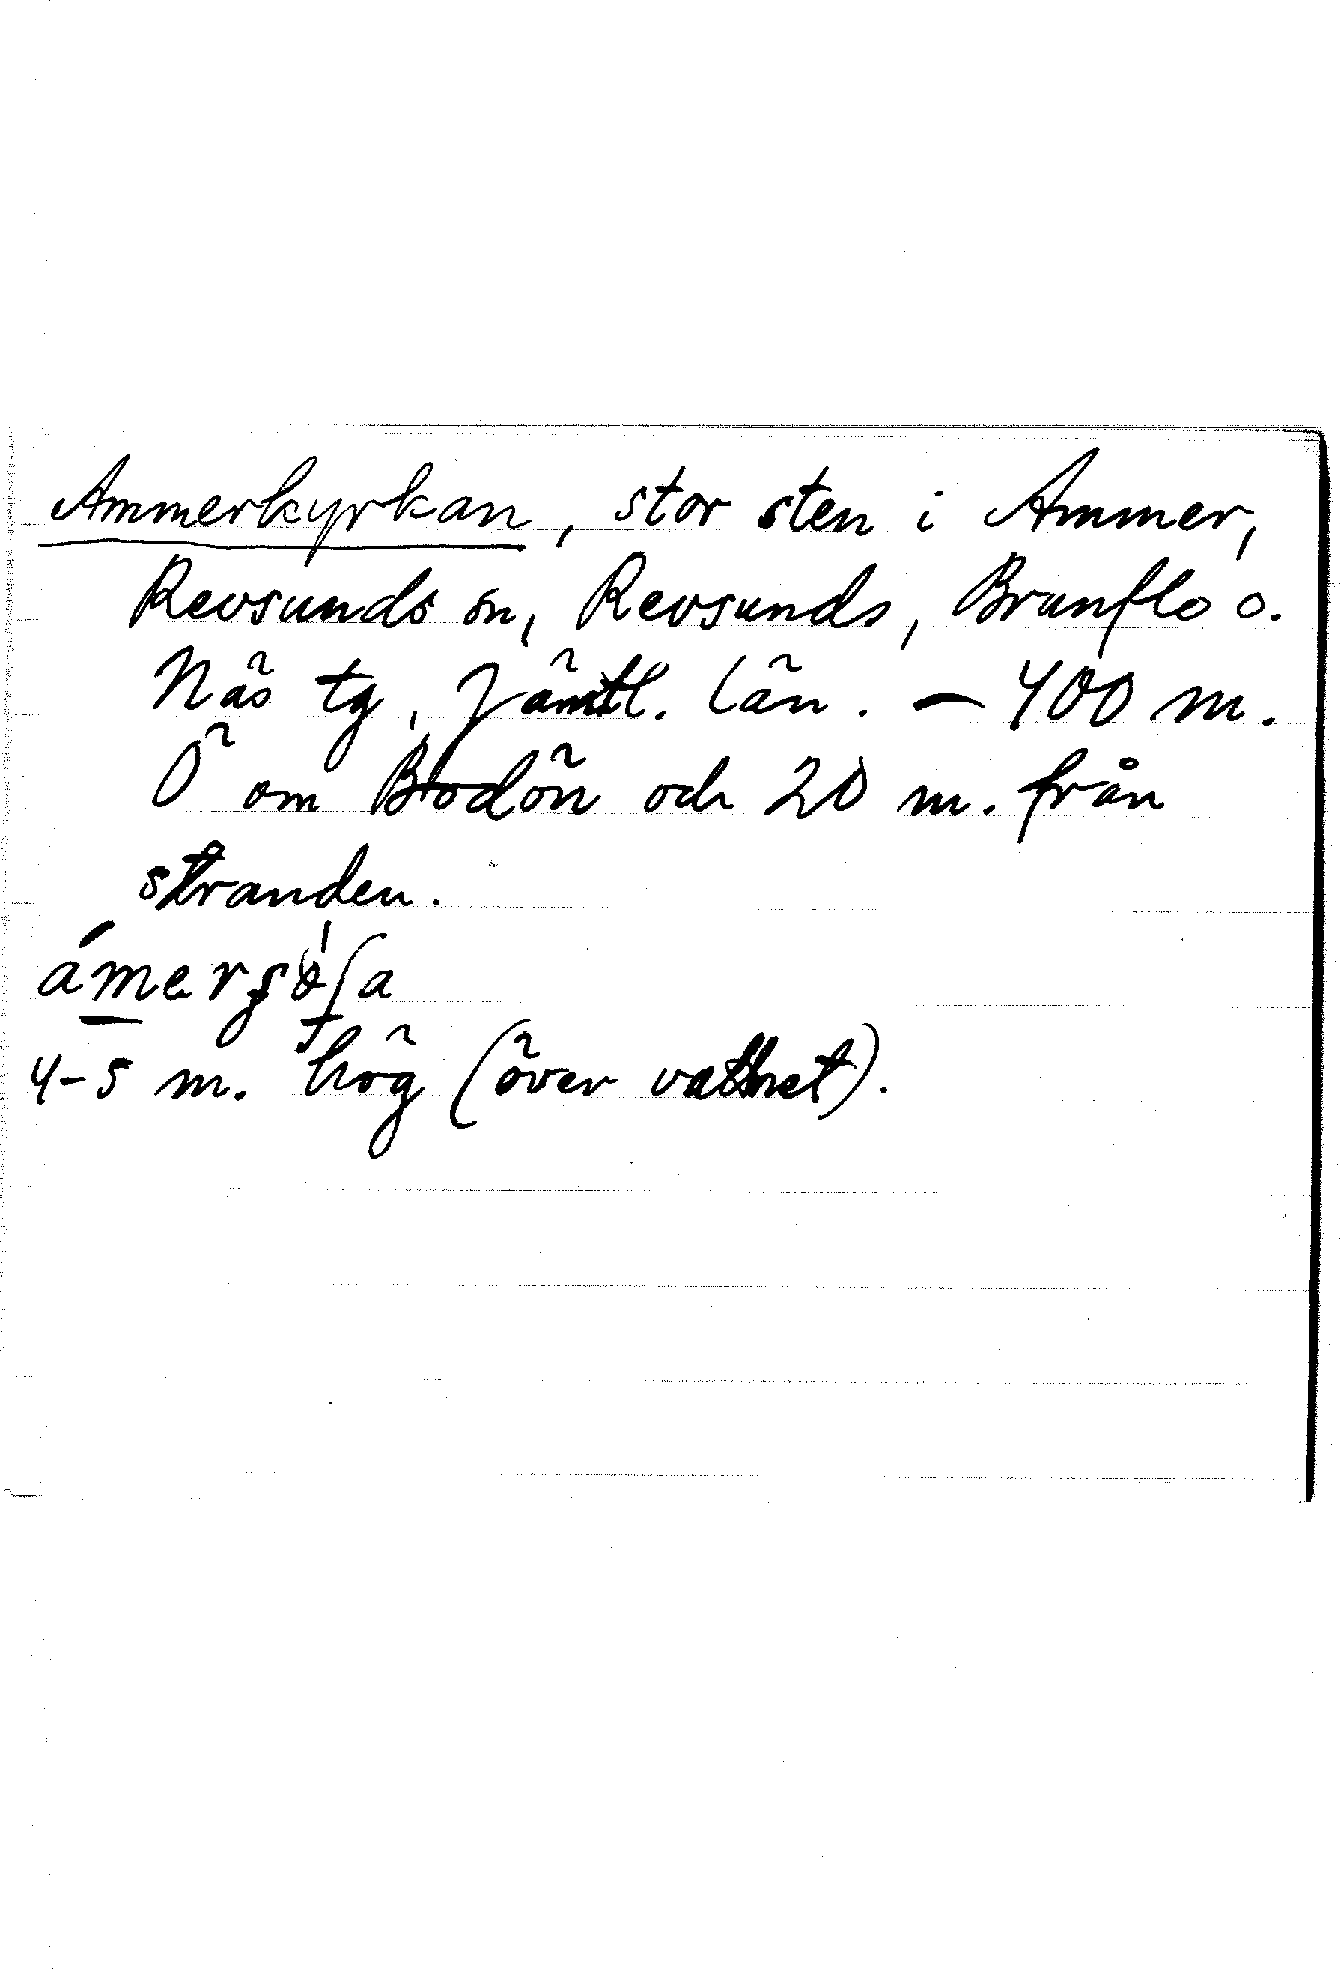 Ammerkyrkan, stor sten i Ammer,
Revsunds sn, Revsunds, Brunflo o.
Näs tg, Jämtl. län. – 400 m.
Ö om Bodön och 20 m. från
stranden.
4-5 m. hög (över vattnet).